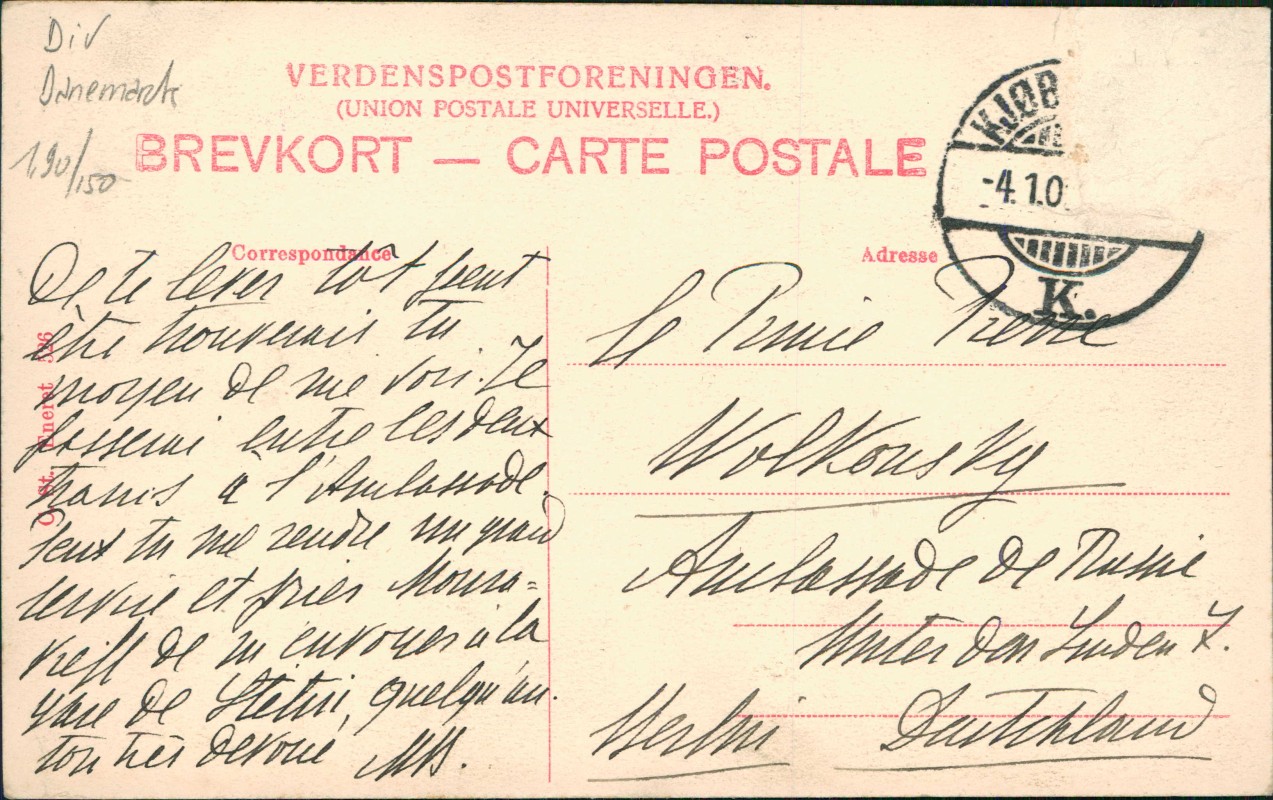 Div
Dänemark
1,90/150
VERDENSPOSTFORENINGEN.
(UNION POSTALE UNIVERSELLE.)
BREVKORT — CARTE POSTALE
KJØB
-4.1.0
K.
Correspondance
Adresse
De te lever tôt peut
être trouverais tu
moyen de me voir. Je
passerai entre les deux
trains à l'Ambassade.
Peux tu me rendre un grand
service et prier Moura-
vieff de m'envoyer à la
gare de Stettin, quelqu'un.
ton très dévoué MB.
St. Eneret 526
Le Prince Pierre
Wolkonsky
Ambassade de Russie
Unter den Linden 7.
Berlin Deutchland